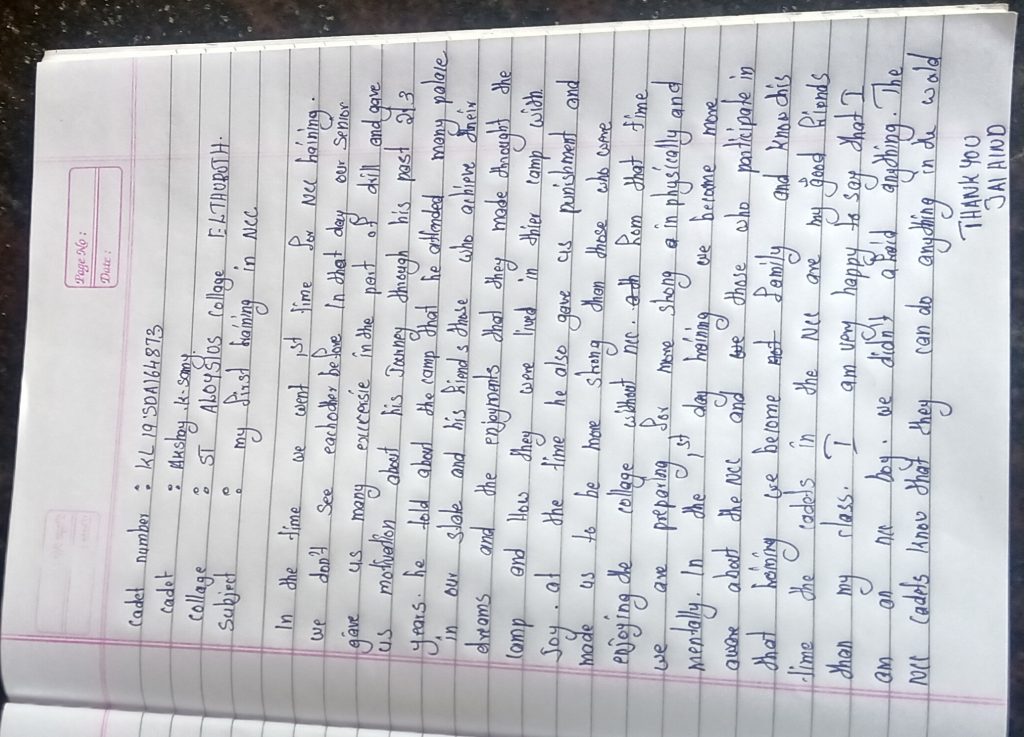 Page No:
Date:
cadet number : KL19'SDA164873
cadet : Akshay.k.somy
collage : ST ALOYSIUS collage ELTHURUTH.
Subject : my first training in NCC
In the time we went 1st time for NCC training.
we don't see eachother before In that day our senior
gave us many excersise in the part of drill and gave
us motivation about his Journey through his past 2/3
years. he told about the camp that he attended many palace
in our state and his friends those who achieve their
dreams and the enjoyments that they made throught the
camp and How they were lived in thier camp with
Joy. at the time he also gave us punishment and
made us to be more strong than those who were
enjoying the collage without ncc. ath from that time
we are preparing for more strong a in physically and
mentally. In the 1st day training we become more
aware about the NCC and we those who participate in
that training we become not family and know this
time the cadets in the NCC are my good friends
than my class. I am very happy to say that I
am an ncc boy. we didn't afraid anything. The
NCC cadets know that they can do anything in the world
THANK YOU
JAI HIND